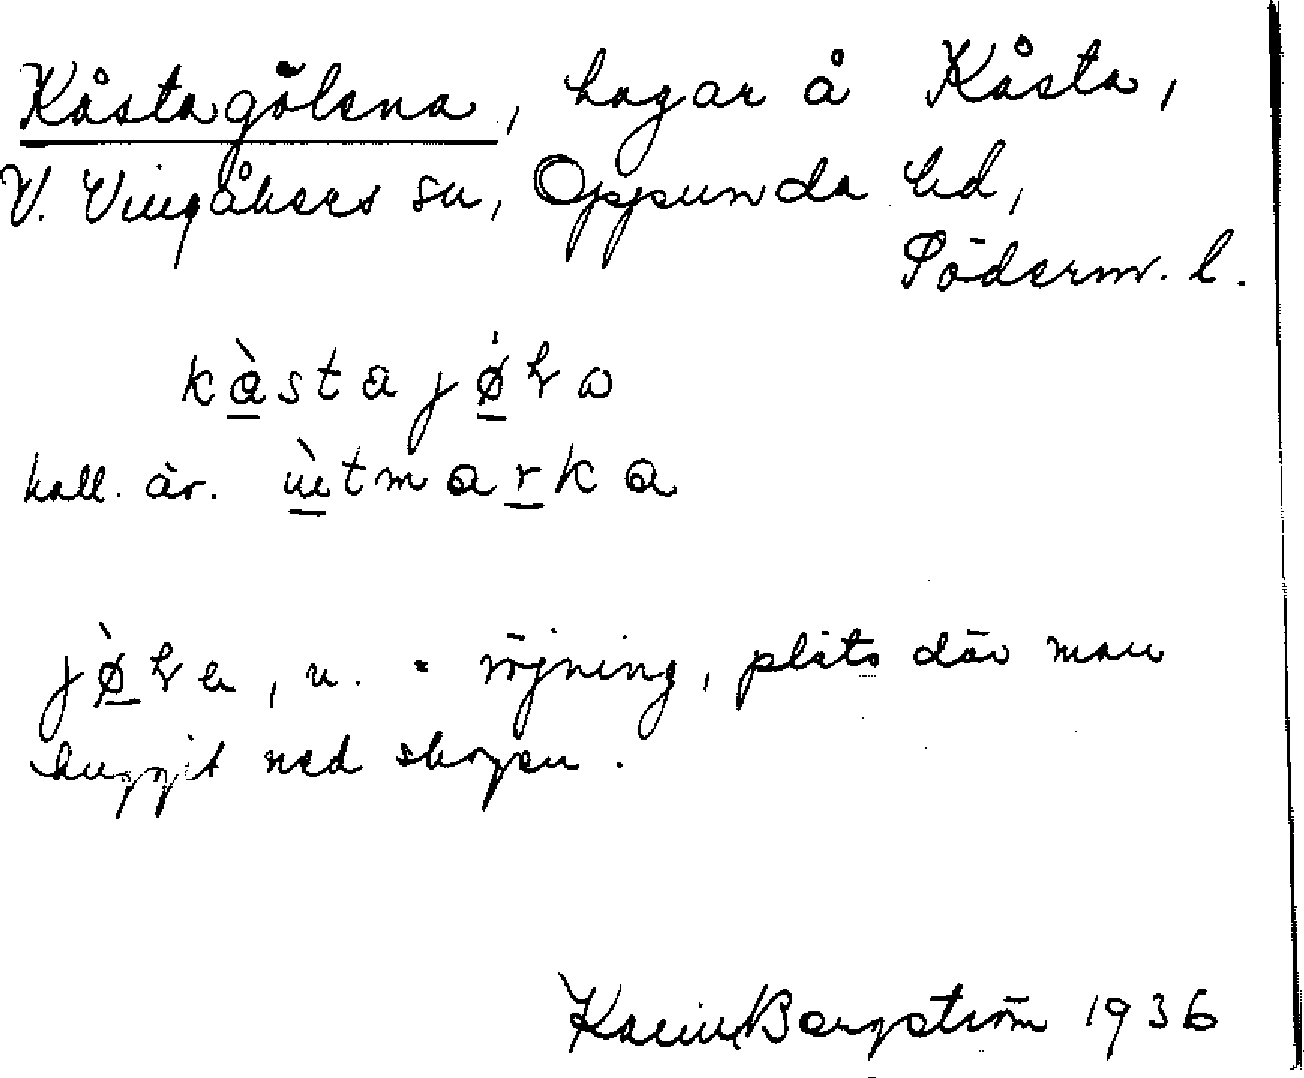 Kåstagölena, hagar å Kåsta,
V. Vingåkers sn, Oppunda hd,
Söderm. l.
kàstajøɫa
kall. äv. ùtmarka
jø̀ɫe, n. = röjning, plats där man
huggit ned skogen.
Karin Bergström 1936